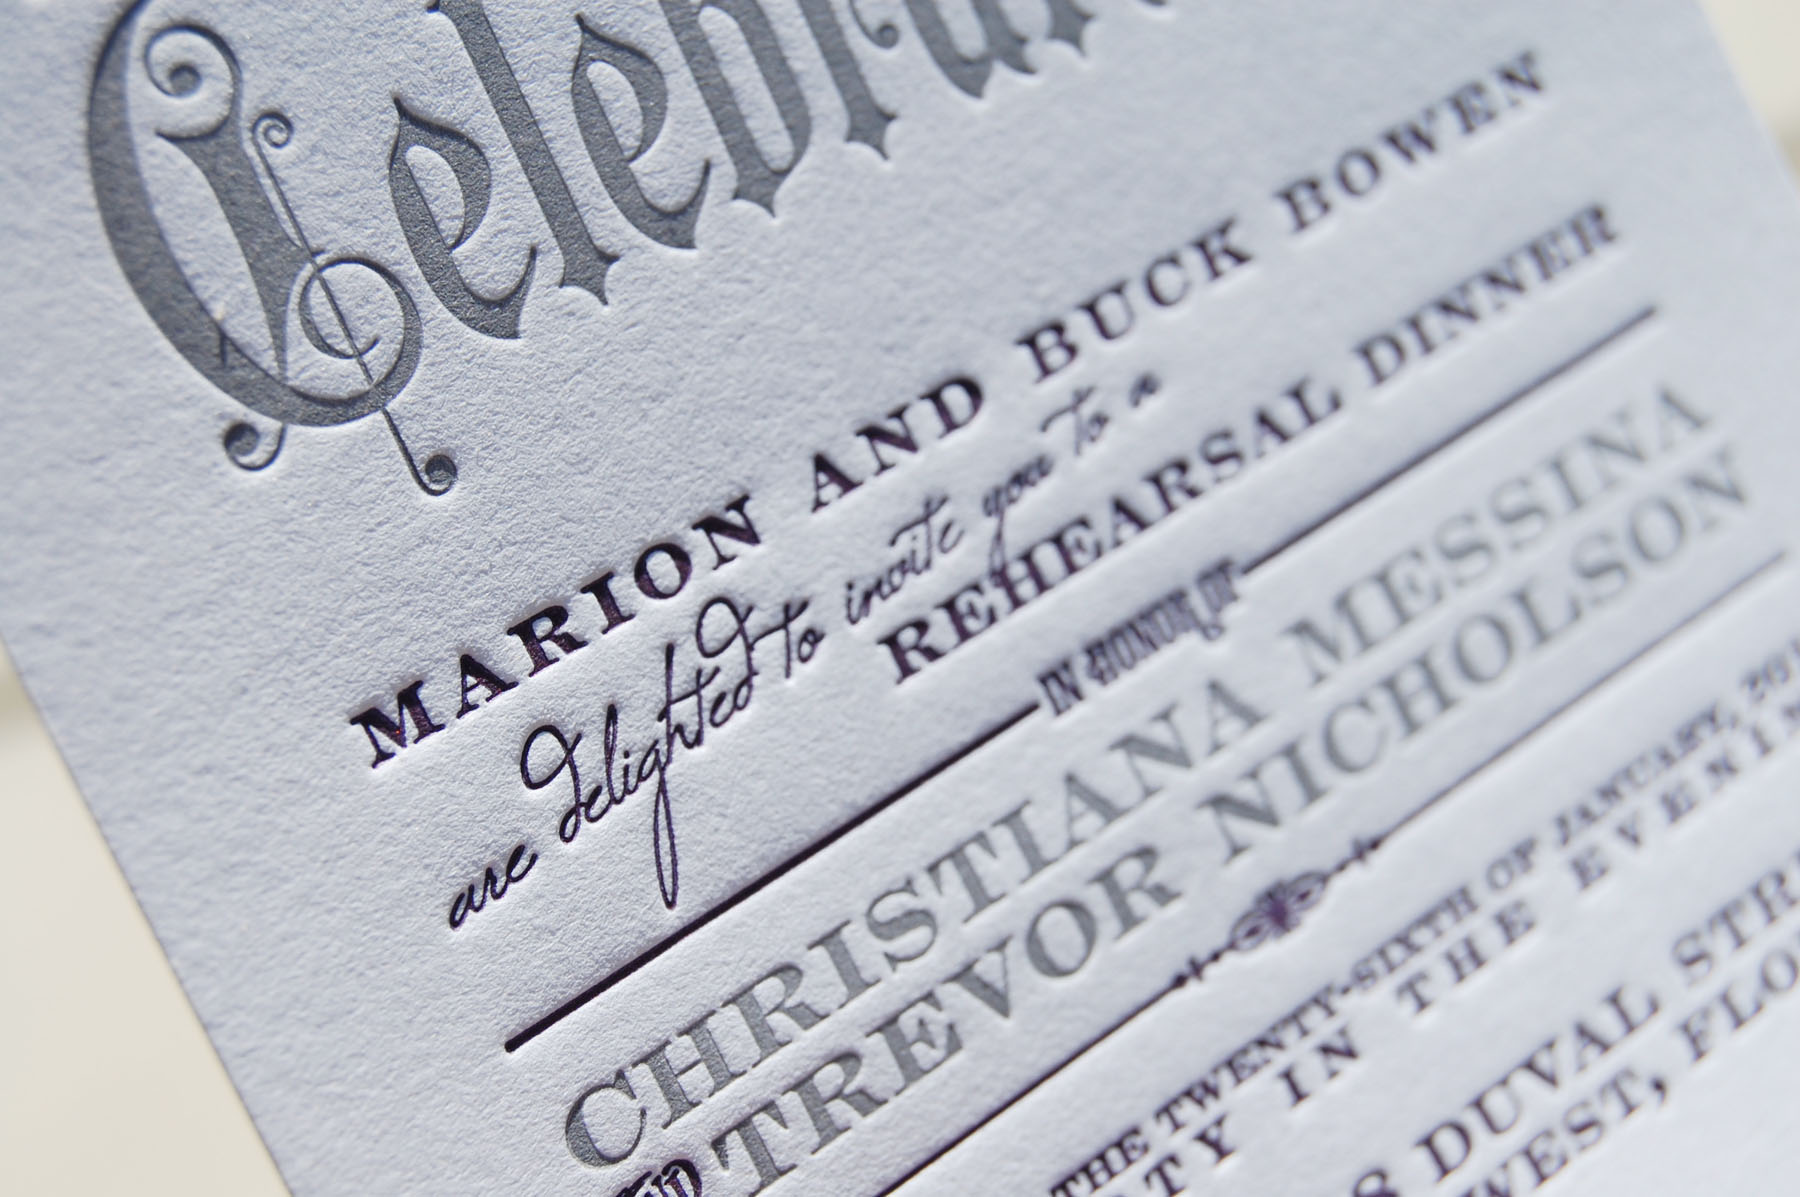 Celebra
MARION AND BUCK BOWEN
are delighted to invite you to a
REHEARSAL DINNER
IN HONOR OF
CHRISTIANA MESSINA
AND TREVOR NICHOLSON
THE TWENTY-SIXTH OF JANUARY, 20
TY IN THE EVENIN
S DUVAL STRE
WEST, FLO